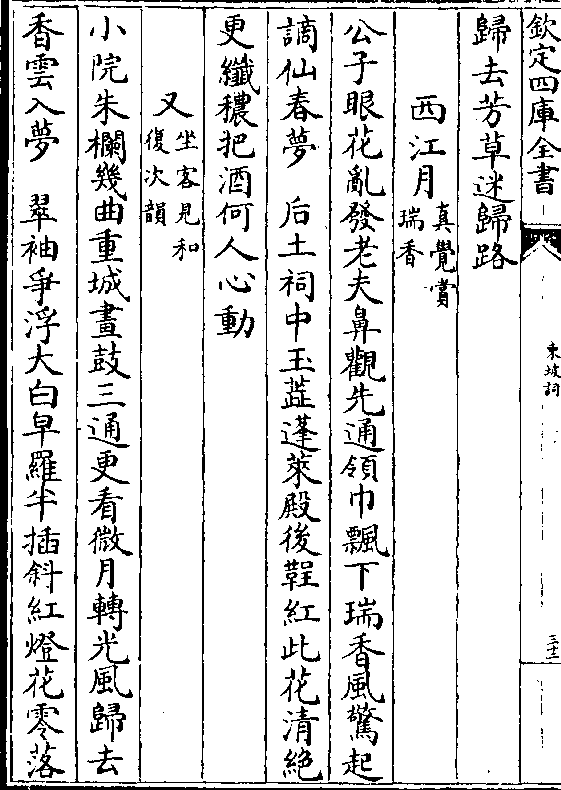 欽定四庫全書
東坡詞
三十二
歸去芳草迷歸路
西江月真覺賞
瑞香
公子眼花亂發老夫鼻觀先通領巾飄下瑞香風驚起
謫仙春夢　后土祠中玉蕋蓬萊殿後鞓紅此花清絶
更纖穠把酒何人心動
又坐客見和
復次韻
小院朱欄幾曲重城畫鼓三通更看微月轉光風歸去
香雲入夢　翠袖爭浮大白皁羅半插斜紅燈花零落